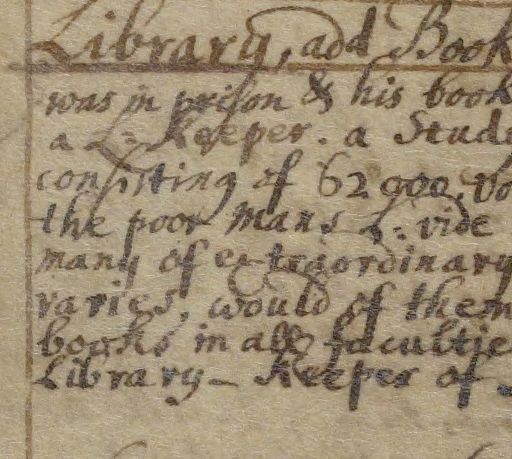 Library, add Book
was in prison & his book
a L: Keeper. a Stud
consisting of 62000 vo
the poor mans L: vide
many of extraordinary
raries, would of them
books in all facultie
Library-Keeper of